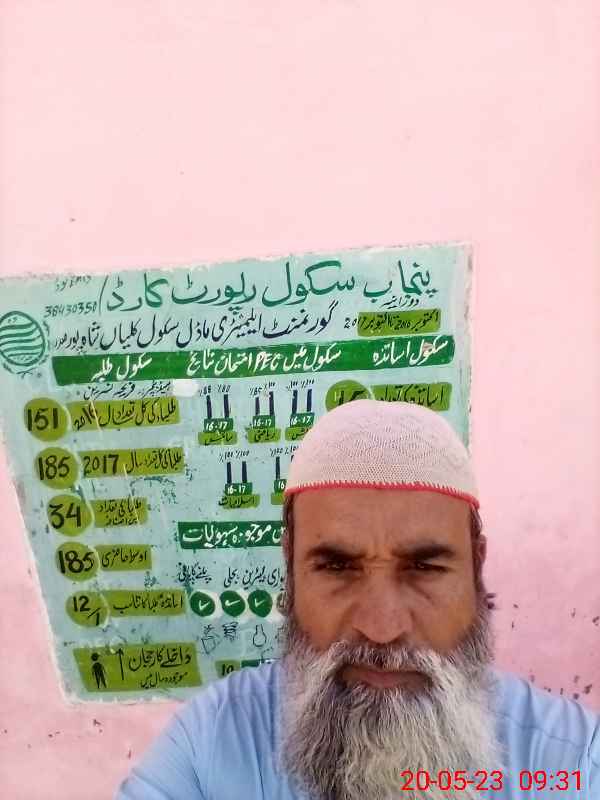 پنجاب سکول رپورٹ کارڈ
38430350
گورنمنٹ ایلیمنٹری ماڈل سکول کلیاں شاہ پور
اکتوبر 2016 تا اکتوبر 2017
سکول اساتذہ
سکول میں PEC امتحان نتائج
سکول طلبہ
اساتذہ کی تعداد
151 طلباء کی کل تعداد سال 2016
16-17 16-17 16-17
سائنس ریاضی
185 طلباء کی کل تعداد سال 2017
16-17
اسلامیات
34 طلباء کی تعداد
موجودہ سہولیات
185 اوسط حاضری
بجلی
12/1 اساتذہ طلبا کا تناسب
داخلے کا رجحان
موجودہ سال میں
10
20-05-23 09:31